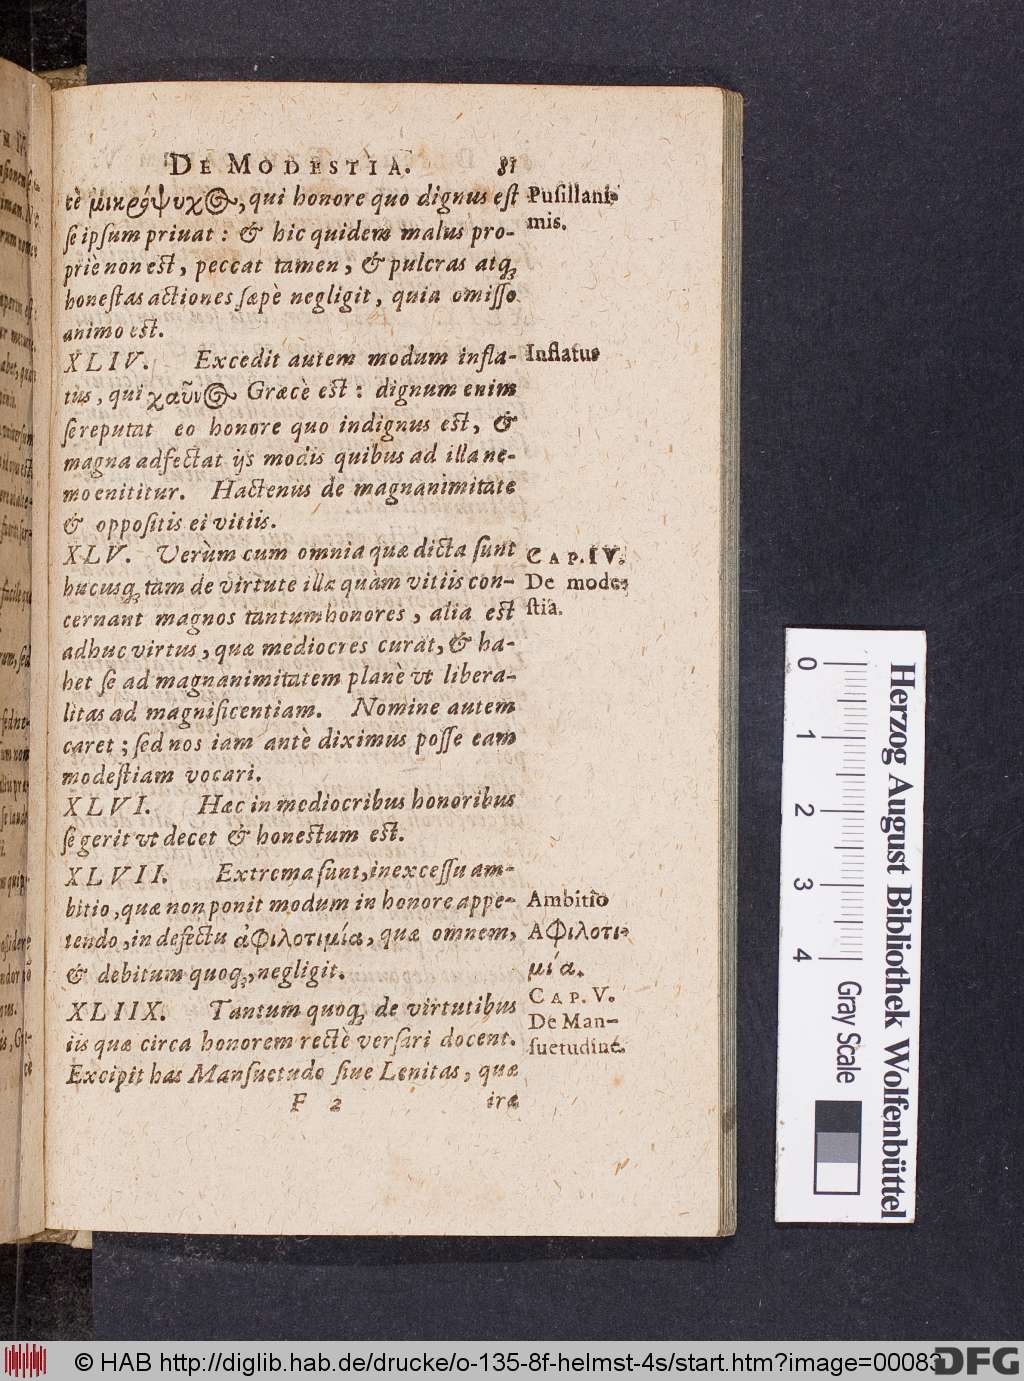 DE MODESTIA. 81
tè μικρόψυχος, qui honore quo dignus est
se ipsum priuat: & hic quidem malus pro-
priè non est, peccat tamen, & pulcras atq;
honestas actiones sæpè negligit, quia omisso
animo est.
Pusillani-
mis.
XLIV. Excedit autem modum infla-
tus, qui χαῦνος Græcè est: dignum enim
se reputat eo honore quo indignus est, &
magna adfectat ijs modis quibus ad illa ne-
mo enititur. Hactenus de magnanimitate
& oppositis ei vitiis.
Inflatus
XLV. Verùm cum omnia quæ dicta sunt
hucusq; tam de virtute illæ quàm vitiis con-
cernant magnos tantum honores, alia est
adhuc virtus, quæ mediocres curat, & ha-
bet se ad magnanimitatem planè vt libera-
litas ad magnificentiam. Nomine autem
caret; sed nos iam antè diximus posse eam
modestiam vocari.
CAP. IV.
De mode-
stia.
XLVI. Hæc in mediocribus honoribus
se gerit vt decet & honestum est.
XLVII. Extrema sunt, in excessu am-
bitio, quæ non ponit modum in honore appe-
tendo, in defectu ἀφιλοτιμία, quæ omnem,
& debitum quoq;, negligit.
Ambitio
Αφιλοτι-
μία.
XLIIX. Tantum quoq; de virtutibus
iis quæ circa honorem rectè versari docent.
Excipit has Mansuetudo siue Lenitas, quæ
CAP. V.
De Man-
suetudine.
F 2 iræ
0 1 2 3 4
Herzog August Bibliothek Wolfenbüttel
Gray Scale
© HAB http://diglib.hab.de/drucke/o-135-8f-helmst-4s/start.htm?image=00083
DFG